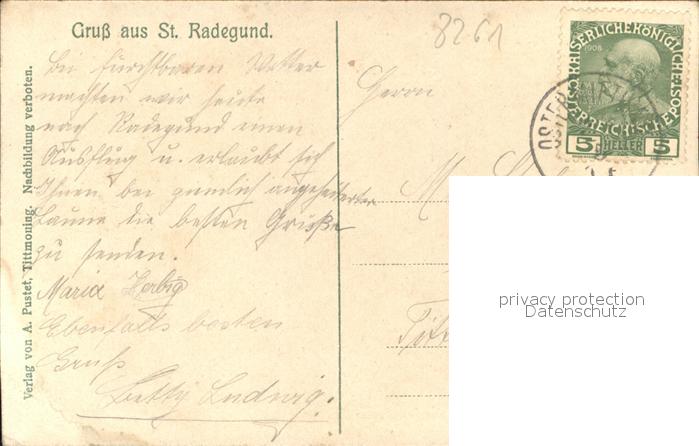 Gruß aus St. Radegund.
8261
Bei furchtbaren Wetter
machten wir heute
nach Radegund einen
Ausflug u. erlaubt sich
Ihnen bei ziemlich angeheiterter
Laune die besten Grüße
zu senden.
Maria Herbig
Ebenfalls besten
Gruß
Betty Ludwig.
Verlag von A. Pustet, Tittmoning. Nachbildung verboten.
Herrn
KAISERLICHE KÖNIGLICHE
ÖSTERREICHISCHE POST
1908
5 HELLER 5
privacy protection
Datenschutz